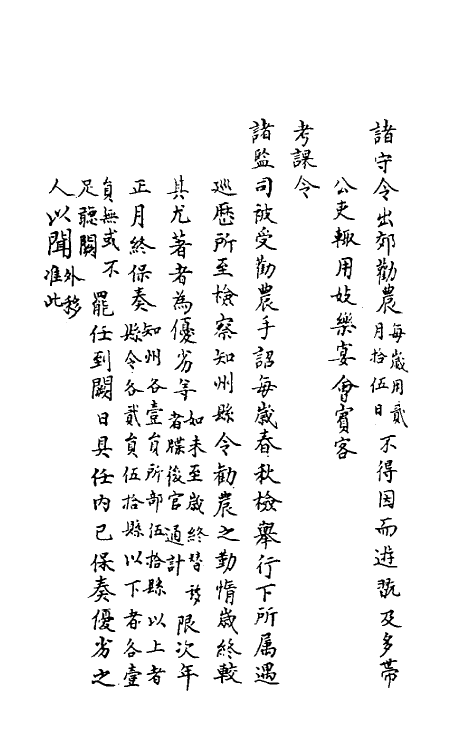 諸守令出郊勸農每歲用貳月拾伍日不得因而遊翫及多帶
公吏輙用妓樂宴會賓客
考課令
諸監司被受勸農手詔每歲春秋檢舉行下所属遇
廵歷所至檢察知州縣令勸農之勤惰歲終較
其尤著者為優劣等如未至歲終替移者牒後官通計限次年
正月終保奏知州各壹員所部伍拾縣以上者縣令各貳員伍拾縣以下者各壹
員無或不足聽闕罷任到闕日具任内已保奏優劣之
人以聞外移准此